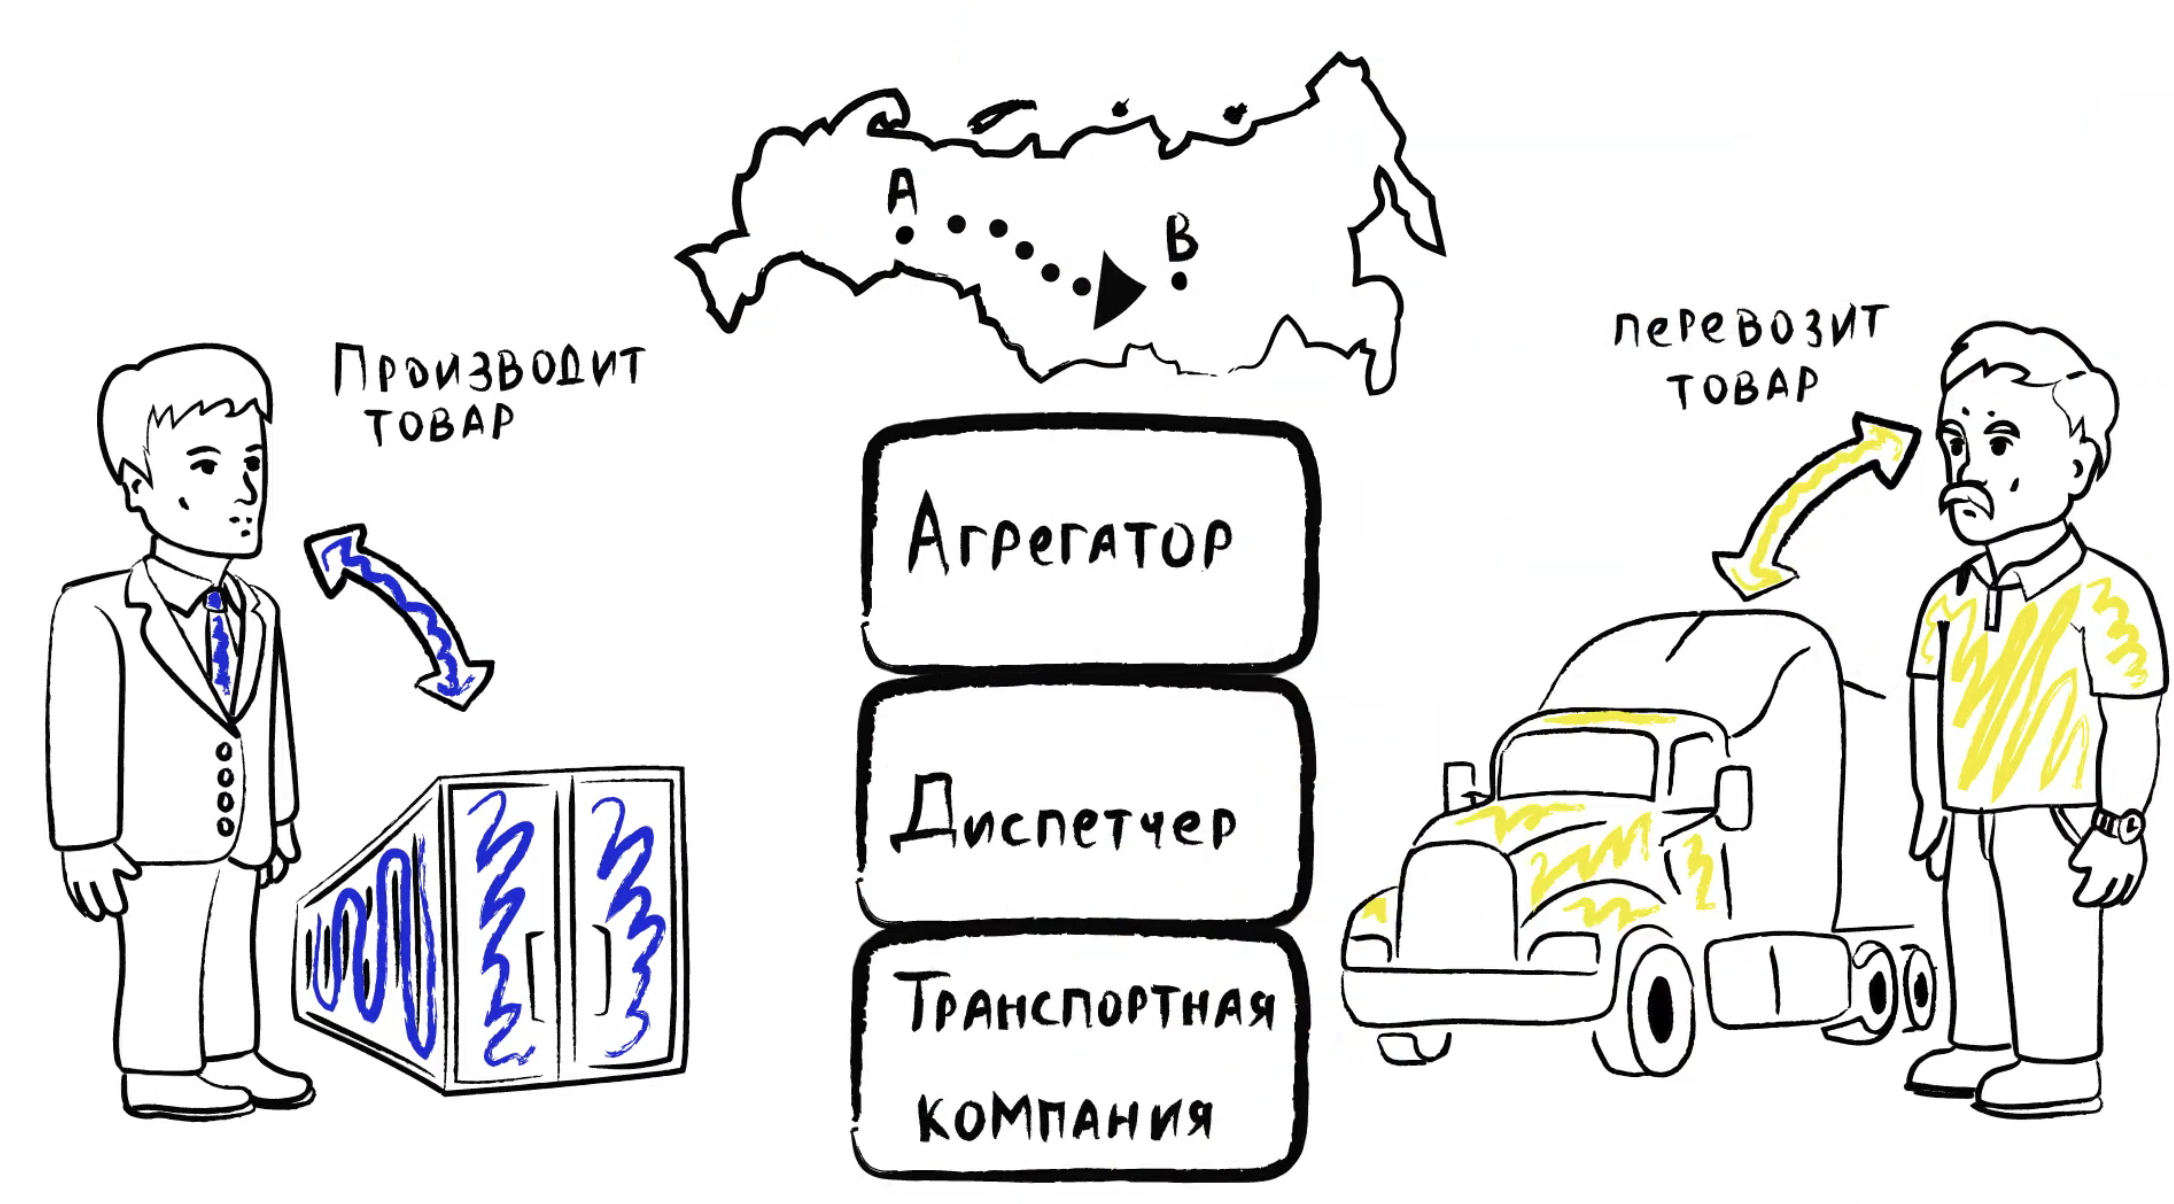 А
В
Производит
товар
перевозит
товар
Агрегатор
Диспетчер
Транспортная
компания